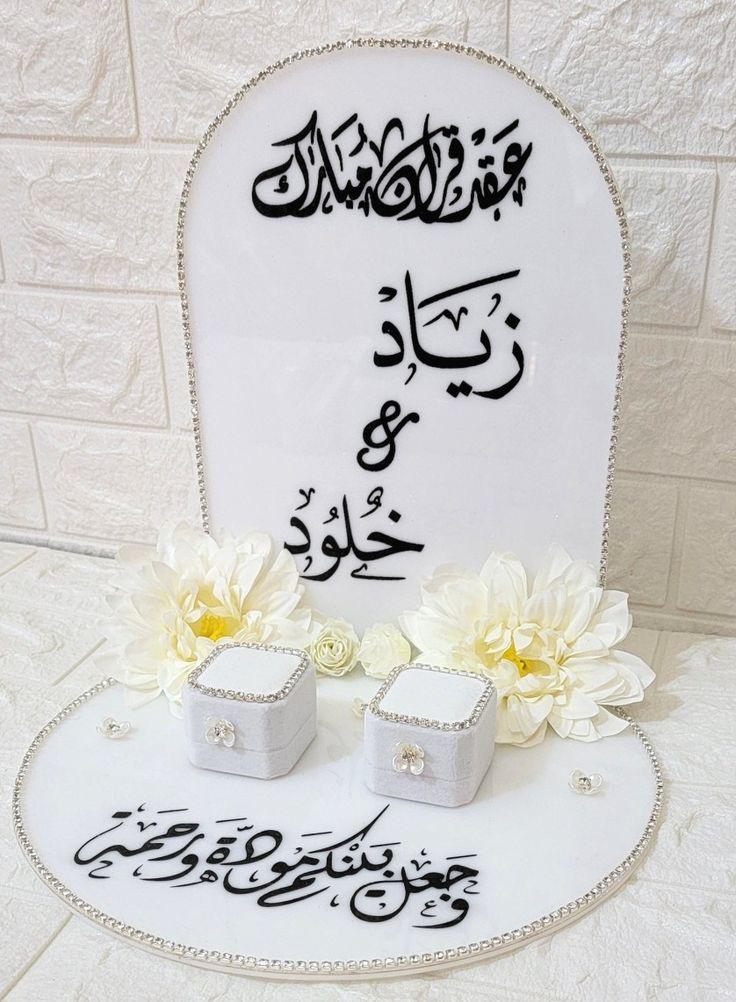 عَقد قِرَان مُبَارَك
زيَاد
&
خُلُود
وَجَعَلَ بَيْنَكُم مَّوَدَّةً وَرَحْمَةً